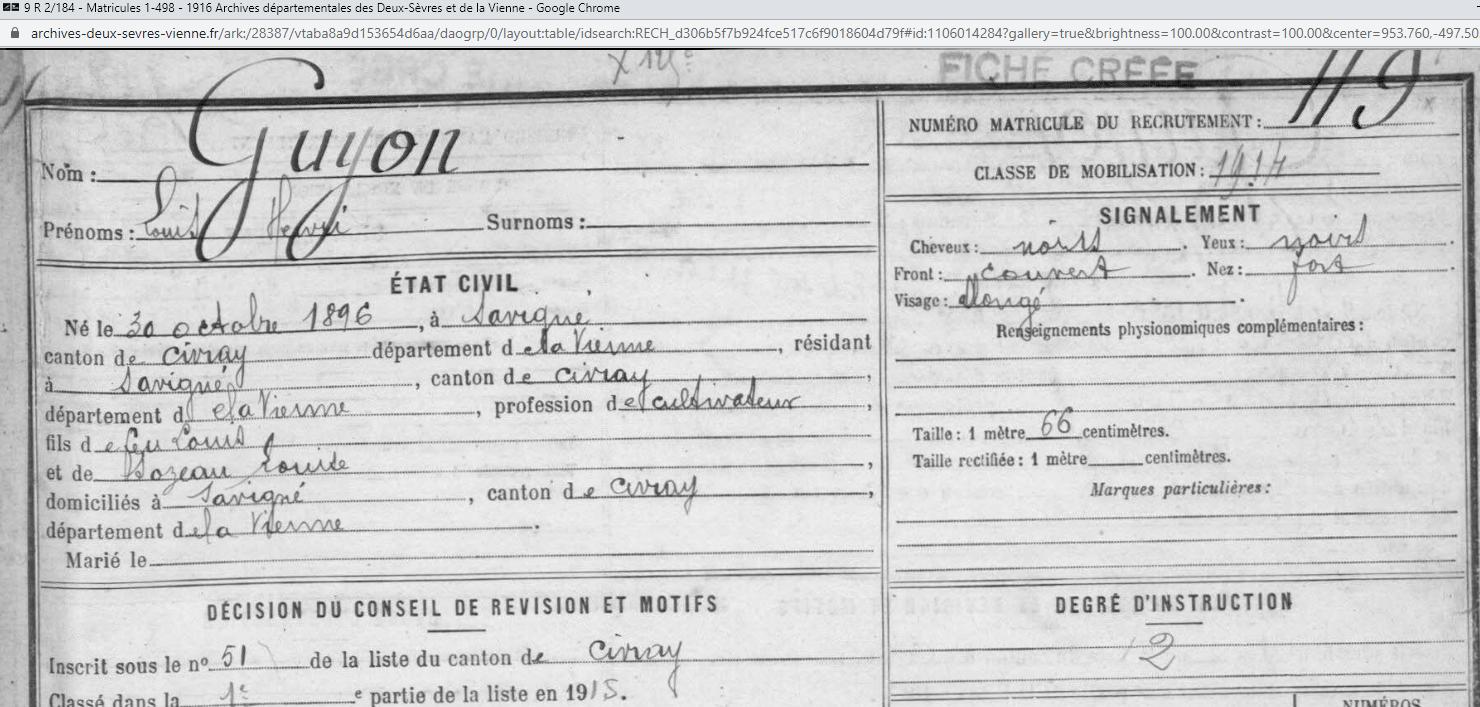 9 R 2/184 - Matricules 1-498 - 1916 Archives départementales des Deux-Sèvres et de la Vienne - Google Chrome
archives-deux-sevres-vienne.fr/ark:/28387/vtaba8a9d153654d6aa/daogrp/0/layout:table/idsearch:RECH_d306b5f7b924fce517c6f9018604d79f#id:1106014284?gallery=true&brightness=100.00&contrast=100.00&center=953.760,-497.50
FICHE CREÉE
Nom : Guyon
Prénoms : Louis Henri Surnoms :
ÉTAT CIVIL
Né le 30 octobre 1896, à Savigné
canton de Civray département de la Vienne, résidant
à Savigné, canton de Civray,
département de la Vienne, profession de cultivateur,
fils de feu Louis
et de Louise,
domiciliés à Savigné, canton de Civray,
département de la Vienne.
Marié le
DÉCISION DU CONSEIL DE REVISION ET MOTIFS
Inscrit sous le no 51 de la liste du canton de Civray
Classé dans la 1e e partie de la liste en 1915.
NUMÉRO MATRICULE DU RECRUTEMENT : 119
CLASSE DE MOBILISATION : 1914
SIGNALEMENT
Cheveux : noirs. Yeux : noirs.
Front : couvert. Nez : fort.
Visage : allongé.
Renseignements physionomiques complémentaires :
Taille : 1 mètre 66 centimètres.
Taille rectifiée : 1 mètre centimètres.
Marques particulières :
DEGRÉ D'INSTRUCTION
2
NUMÉROS